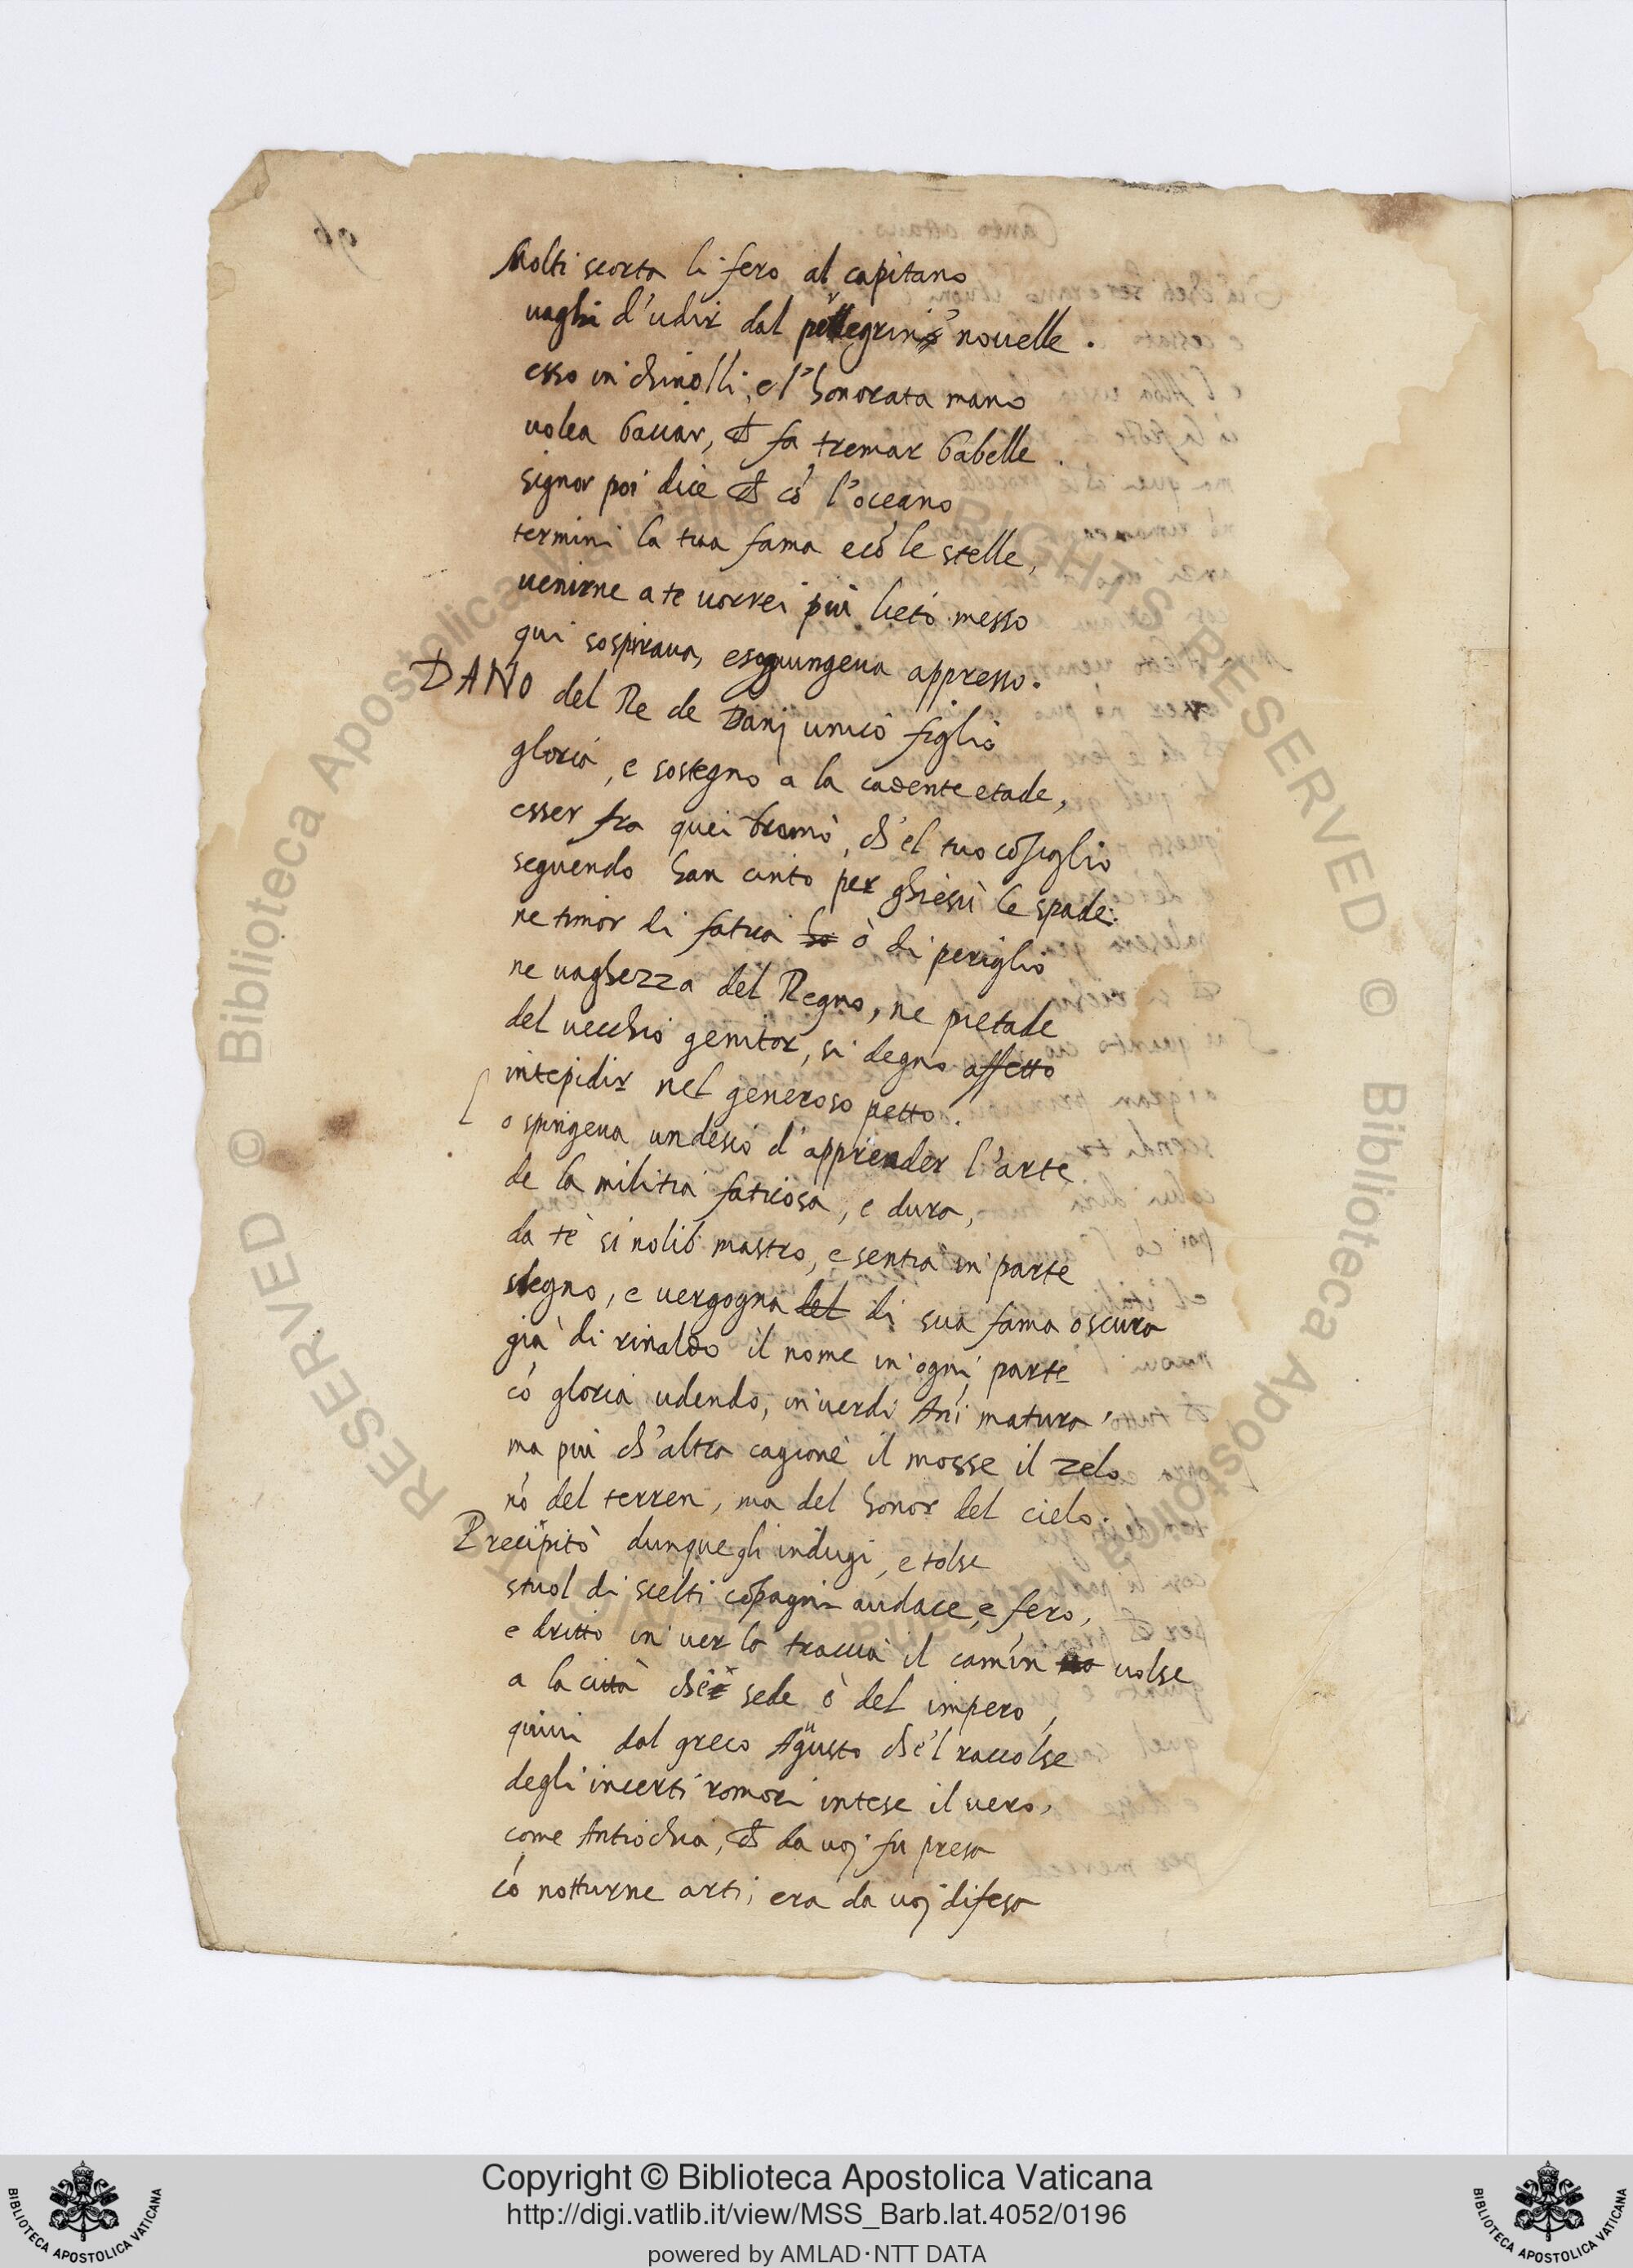 Molti scorta li fero al capitano
uaghi d'udir dal pellegrin nouelle.
esso inchinolli, e l'honorata mano
uolea baciar, ch fa tremar babelle
signor poi dice ch cō l'oceano
termini la tua fama e cō le stelle,
uenirne a te uorrei più lieto messo
qui sospiraua, e soggiungeua appresso.
DANO del Re de Danj unico figlio
gloria, e sostegno a la cadente etade,
esser fra quei bramò, ch'el tuo cōsiglio
seguendo han cinto per ghiesù le spade.
ne timor di fatica ò di periglio
ne uaghezza del Regno, ne pietade
del uecchio genitor, si degno affetto
intepidir nel generoso petto.
o spingeua un desio d'apprender l'arte
de la militia faticosa, e dura,
da tè si nobil mastro, e sentia in parte
sdegno, e uergogna del di sua fama oscura
già di rinaldo il nome in ogni parte
cō gloria udendo, in uerdi Ani matura,
ma più ch'altra cagione il mosse il zelo
nō del terren, ma del honor del cielo.
Precipitò dunque gli indugi, e tolse
stuol di scelti cōpagni audace, e fero,
e dritto in uer la traccia il camin uolse
a la città che sede è del impero,
quiui dal greco Agusto che'l raccolse
degli incerti romori intese il uero,
come Antiochia, ch da uoj fu presa
cō notturne arti, era da uoj difesa
Copyright © Biblioteca Apostolica Vaticana
http://digi.vatlib.it/view/MSS_Barb.lat.4052/0196
powered by AMLAD·NTT DATA
BIBLIOTECA APOSTOLICA VATICANA
BIBLIOTECA APOSTOLICA VATICANA